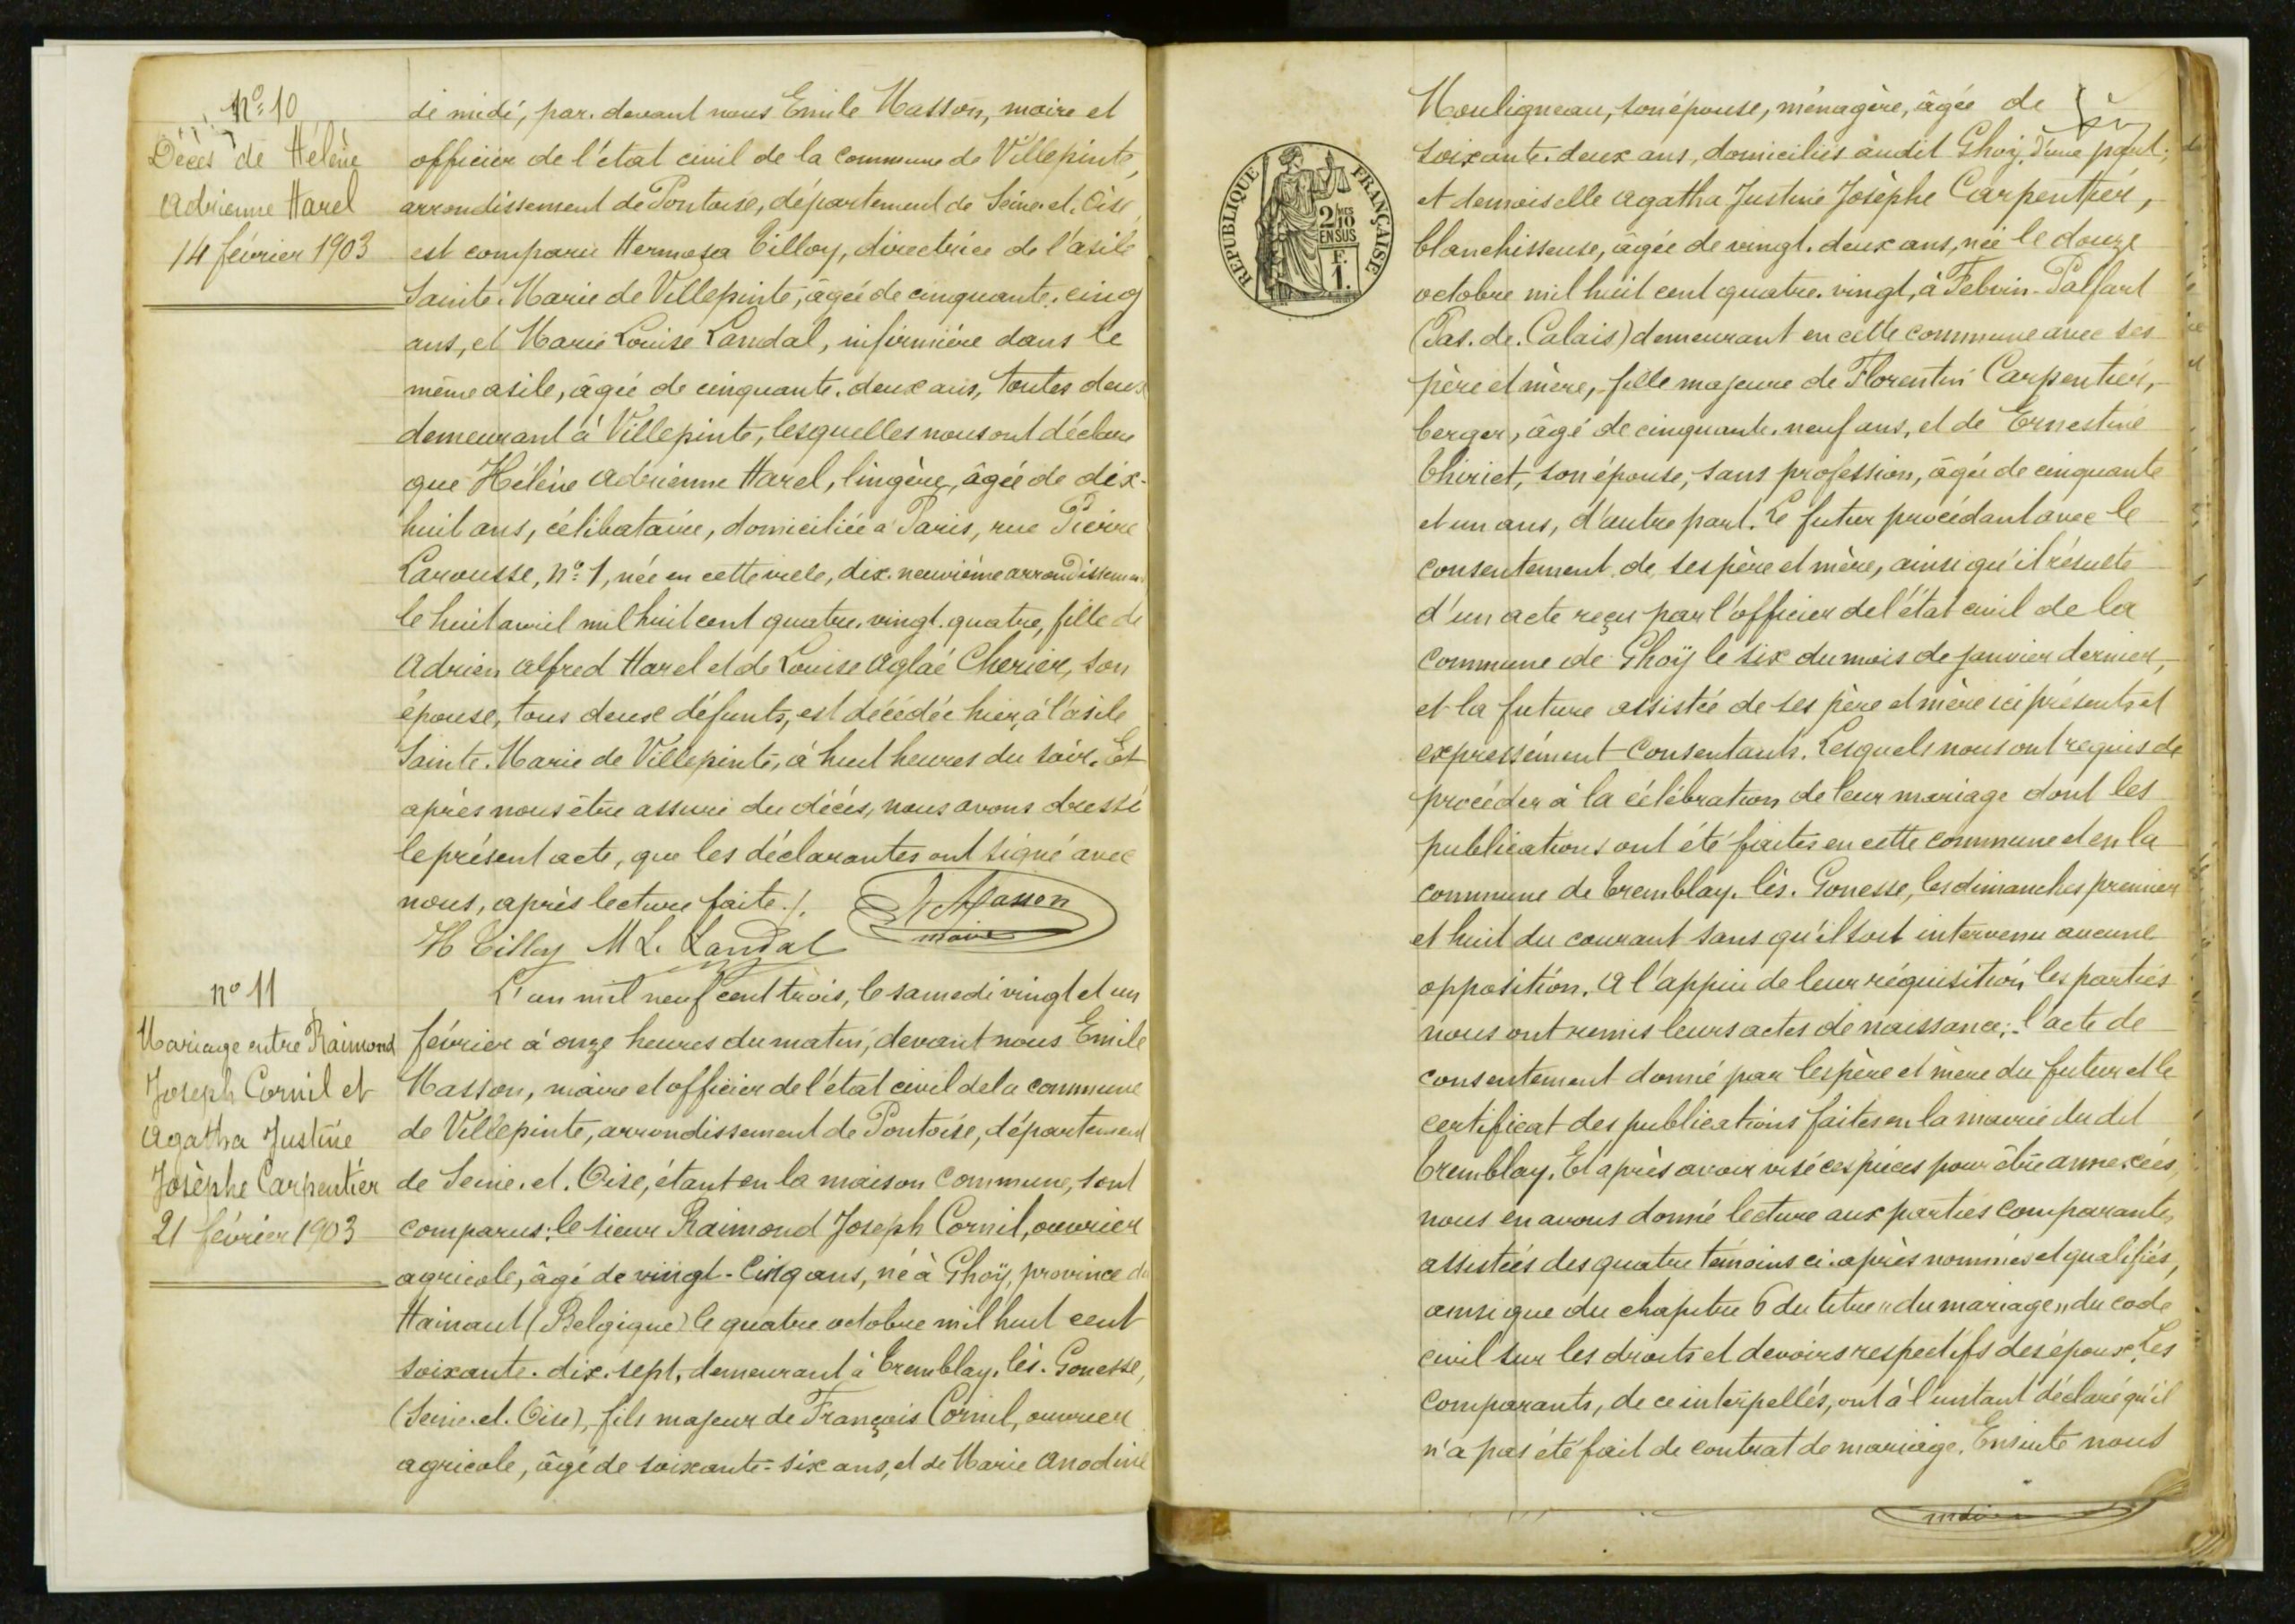 N° 10
Décès de Hélène
Adrienne Harel
14 février 1903
de midi, par. devant nous Emile Masson, maire et
officier de l'état civil de la commune de Villepinte,
arrondissement de Pontoise, département de Seine. et. Oise,
est comparu Hermosa Tilloy, directrice de l'asile
Sainte. Marie de Villepinte, âgée de cinquante. cinq
ans, et Marie Louise Landal, infirmière dans le
même asile, âgée de cinquante. deux ans, toutes deux
demeurant à Villepinte, lesquelles nous ont déclaré
que Hélène Adrienne Harel, lingère, âgée de dix-
huit ans, célibataire, domiciliée à Paris, rue Pierre
Larousse, n° 1, née en cette ville, dix. neuvième arrondissement
le huit avril mil huit cent quatre. vingt. quatre, fille de
Adrien Alfred Harel et de Louise Aglaé Cherier, son
épouse, tous deux défunts, est décédée hier, à l'asile
Sainte. Marie de Villepinte, à huit heures du soir. Et
après nous être assuré du décès, nous avons dressé
le présent acte, que les déclarantes ont signé avec
nous, après lecture faite./.
E Masson
maire
H Tilloy M L. Landal
n° 11
Mariage entre Raimond
Joseph Cornil et
Agatha Justine
Josèphe Carpentier
21 février 1903
L'an mil neuf cent trois, le samedi vingt et un
février à onze heures du matin, devant nous Emile
Masson, maire et officier de l'état civil de la commune
de Villepinte, arrondissement de Pontoise, département
de Seine. et. Oise, étant en la maison commune, sont
comparus: le sieur Raimond Joseph Cornil, ouvrier
agricole, âgé de vingt-cinq ans, né à Ghoÿ, province du
Hainaut (Belgique) le quatre octobre mil huit cent
soixante. dix. sept, demeurant à Tremblay. lès. Gonesse,
(Seine. et. Oise), fils majeur de François Cornil, ouvrier
agricole, âgé de soixante-six ans, et de Marie Anodine
REPUBLIQUE FRANÇAISE
2/10 EN SUS
F.
1.
Mouligneau, son épouse, ménagère, âgée de
soixante. deux ans, domiciliés audit Ghoÿ, d'une part;
et demoiselle Agatha Justine Josèphe Carpentier,
blanchisseuse, âgée de vingt. deux ans, née le douze
octobre mil huit cent quatre. vingt, à Febvin-Palfart
(Pas. de. Calais) demeurant en cette commune avec ses
père et mère, fille majeure de Florentin Carpentier,
berger, âgé de cinquante. neuf ans, et de Ernestine
Thiriet, son épouse, sans profession, âgée de cinquante
et un ans, d'autre part. Le futur procédant avec le
consentement de ses père et mère, ainsi qu'il résulte
d'un acte reçu par l'officier de l'état civil de la
commune de Ghoÿ le six du mois de janvier dernier,
et la future assistée de ses père et mère ici présents et
expressément consentants. Lesquels nous ont requis de
procéder à la célébration de leur mariage dont les
publications ont été faites en cette commune et en la
commune de Tremblay. lès. Gonesse, les dimanches premier
et huit du courant sans qu'il soit intervenu aucune
opposition. A l'appui de leur réquisition, les parties
nous ont remis leurs actes de naissance; l'acte de
consentement donné par les père et mère du futur et le
certificat des publications faites en la mairie du dit
Tremblay. Et après avoir visé ces pièces pour être annexées,
nous en avons donné lecture aux parties comparantes,
assistées des quatre témoins ci. après nommés et qualifiés,
ainsi que du chapitre 6 du titre "du mariage" du code
civil sur les droits et devoirs respectifs des époux. Les
comparants, de ce interpellés, ont à l'instant déclaré qu'il
n'a pas été fait de contrat de mariage. Ensuite nous
maire